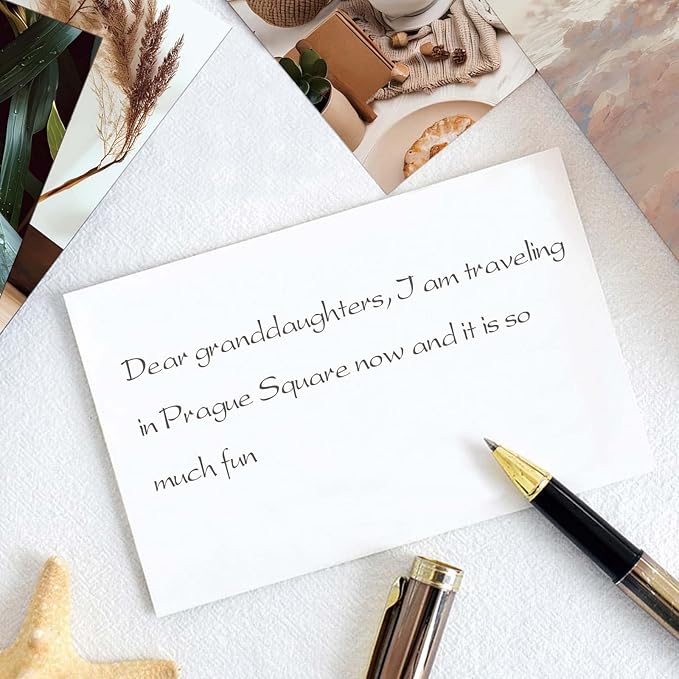 Dear granddaughters, I am traveling
in Prague Square now and it is so
much fun